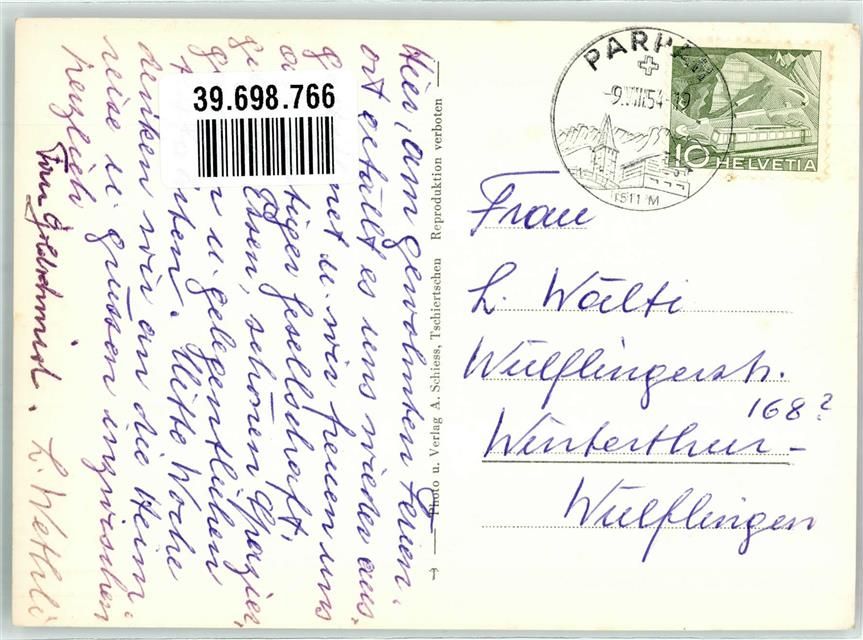 Hier, am gewohnten Ferien-
ort gefällt es uns wieder aus-
net u. wir freuen uns
tiger Gesellschaft,
Essen, schönen Spazier,
u. gelegentlichen
Mitte Woche
denken wir an die Heim-
reise u. grüssen inzwischen
herzlich
L. Wethli
Frau Goldschmid.
39.698.766
Photo u. Verlag A. Schiess, Tschiertschen Reproduktion verboten
PARPAN
-9.VIII.54-19
1511 M
10 HELVETIA
Frau
L. Wälti
Wülflingerstr.
168?
Winterthur-
Wülflingen